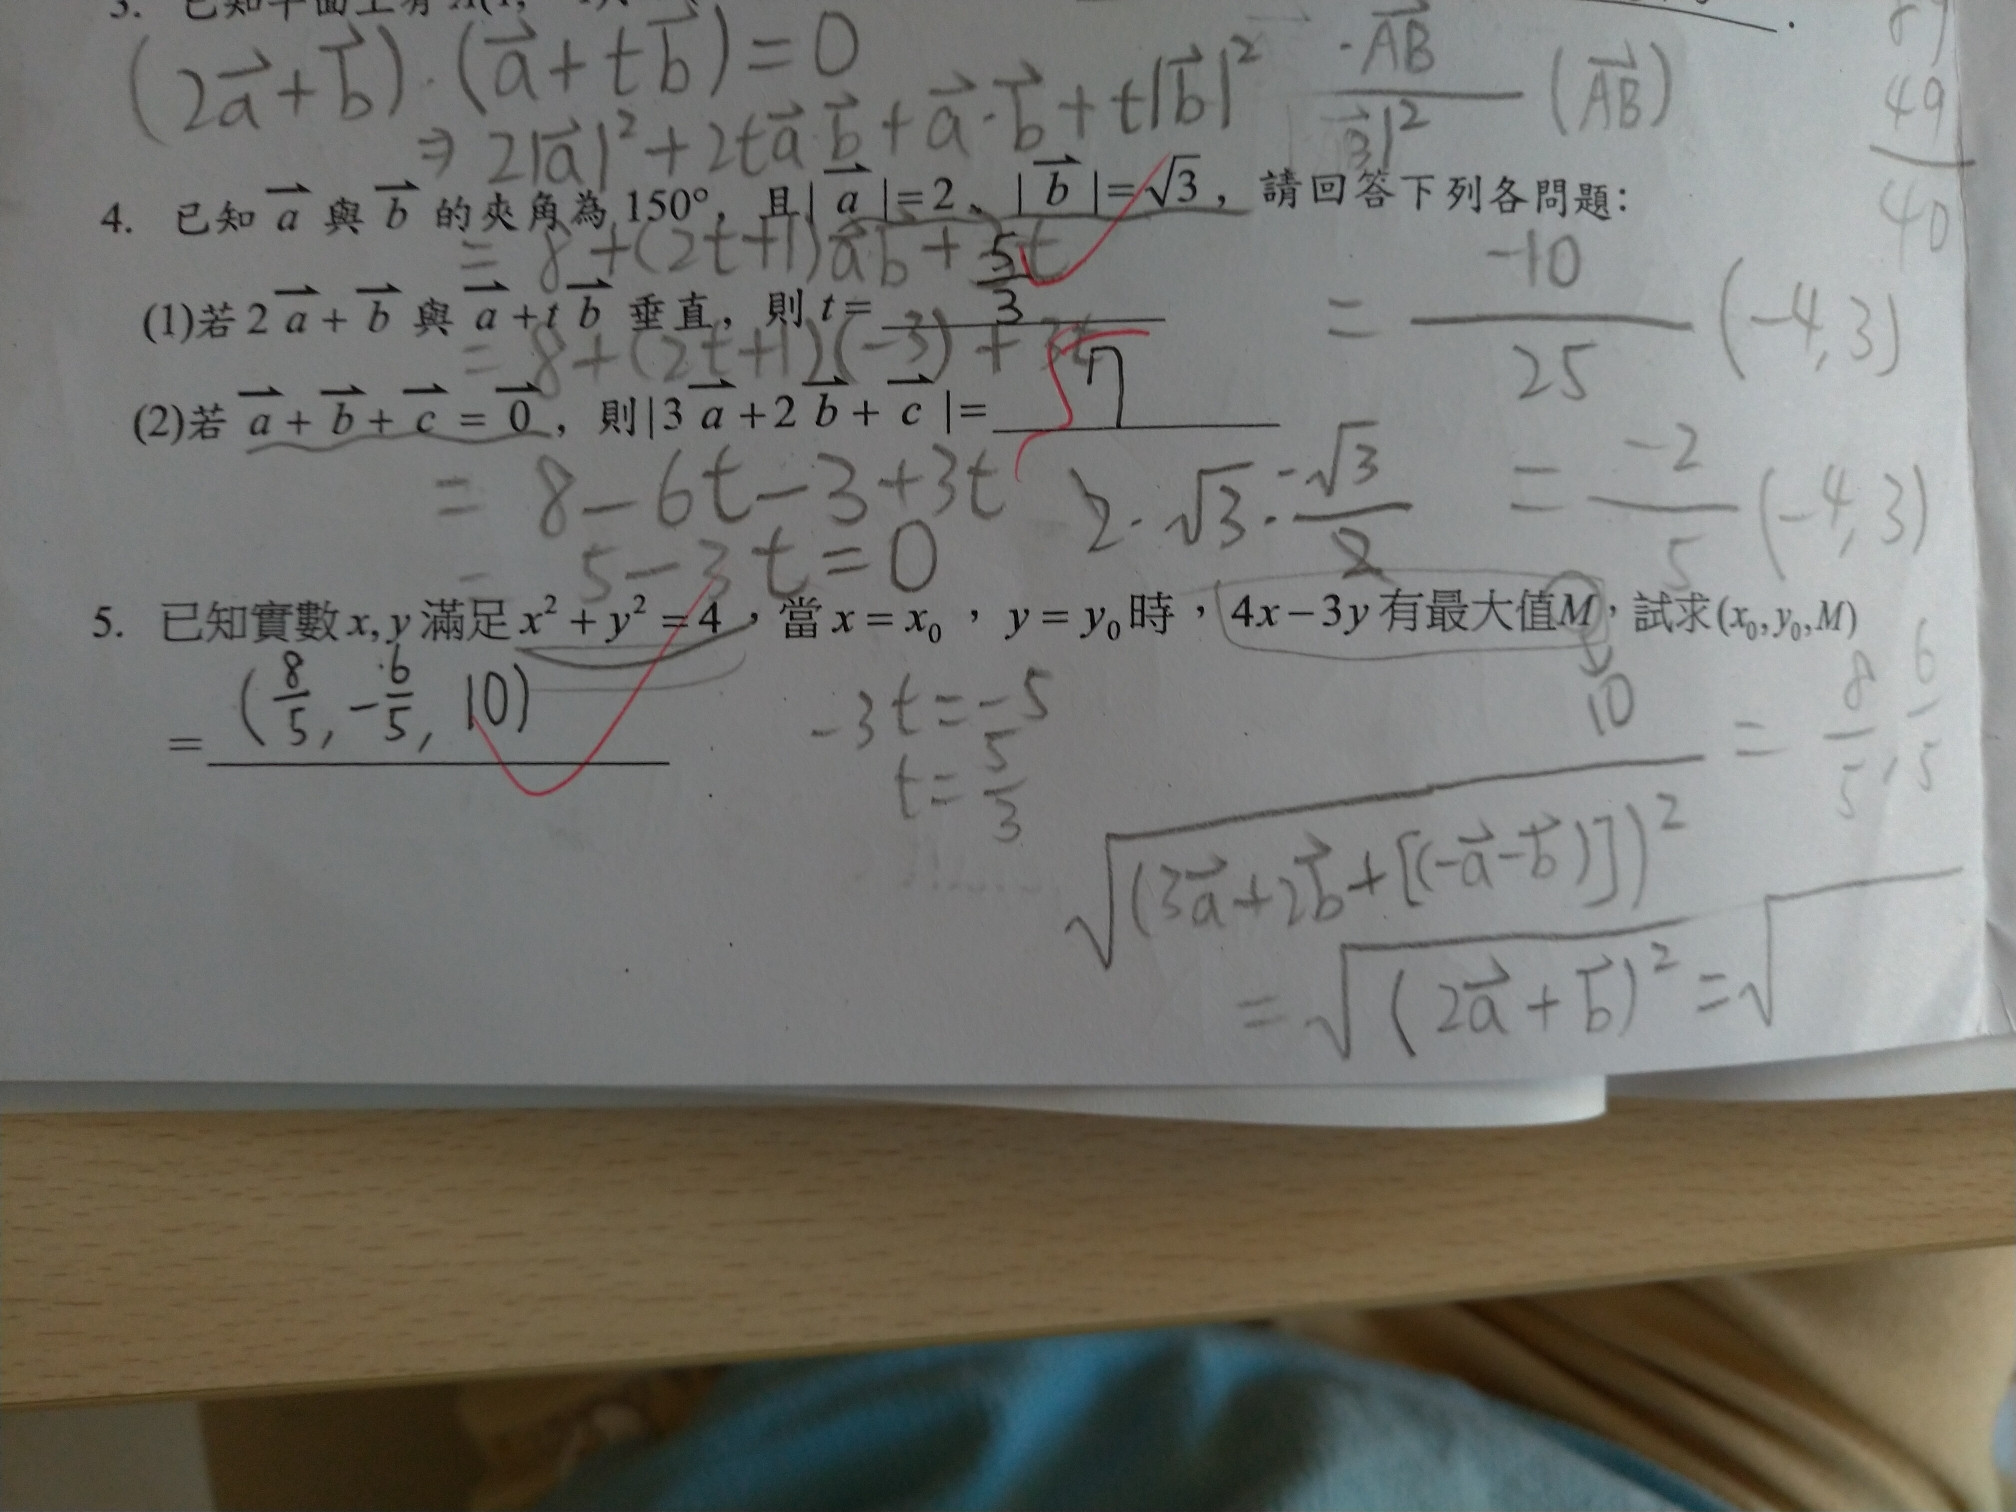 (2a⃗+b⃗)·(a⃗+tb⃗)=0
⇒ 2|a⃗|²+2ta⃗·b⃗+a⃗·b⃗+t|b⃗|²
·AB⃗ (AB⃗)
49
40
4. 已知 a⃗ 與 b⃗ 的夾角為 150°，且| a⃗ |=2、| b⃗ |=√3，請回答下列各問題：
= 8+(2t+1)ab+3t
(1)若 2 a⃗ + b⃗ 與 a⃗ +t b⃗ 垂直，則 t= 5/3
= 8+(2t+1)(-3)+3t
= -10/25 (-4,3)
(2)若 a⃗ + b⃗ + c⃗ = 0⃗，則|3 a⃗ +2 b⃗ + c⃗ |= √7
= 8-6t-3+3t
2·√3·-√3/2
= -2/5 (-4,3)
= 5-3t=0
5. 已知實數 x, y 滿足 x²+y²=4，當 x=x₀，y=y₀ 時，4x-3y 有最大值M，試求(x₀,y₀,M)
= (8/5, -6/5, 10)
10
-3t=-5
t=5/3
= 8/5, 6/5
√(3a⃗+2b⃗+[(-a⃗-b⃗)])²
= √(2a⃗+b⃗)² = √